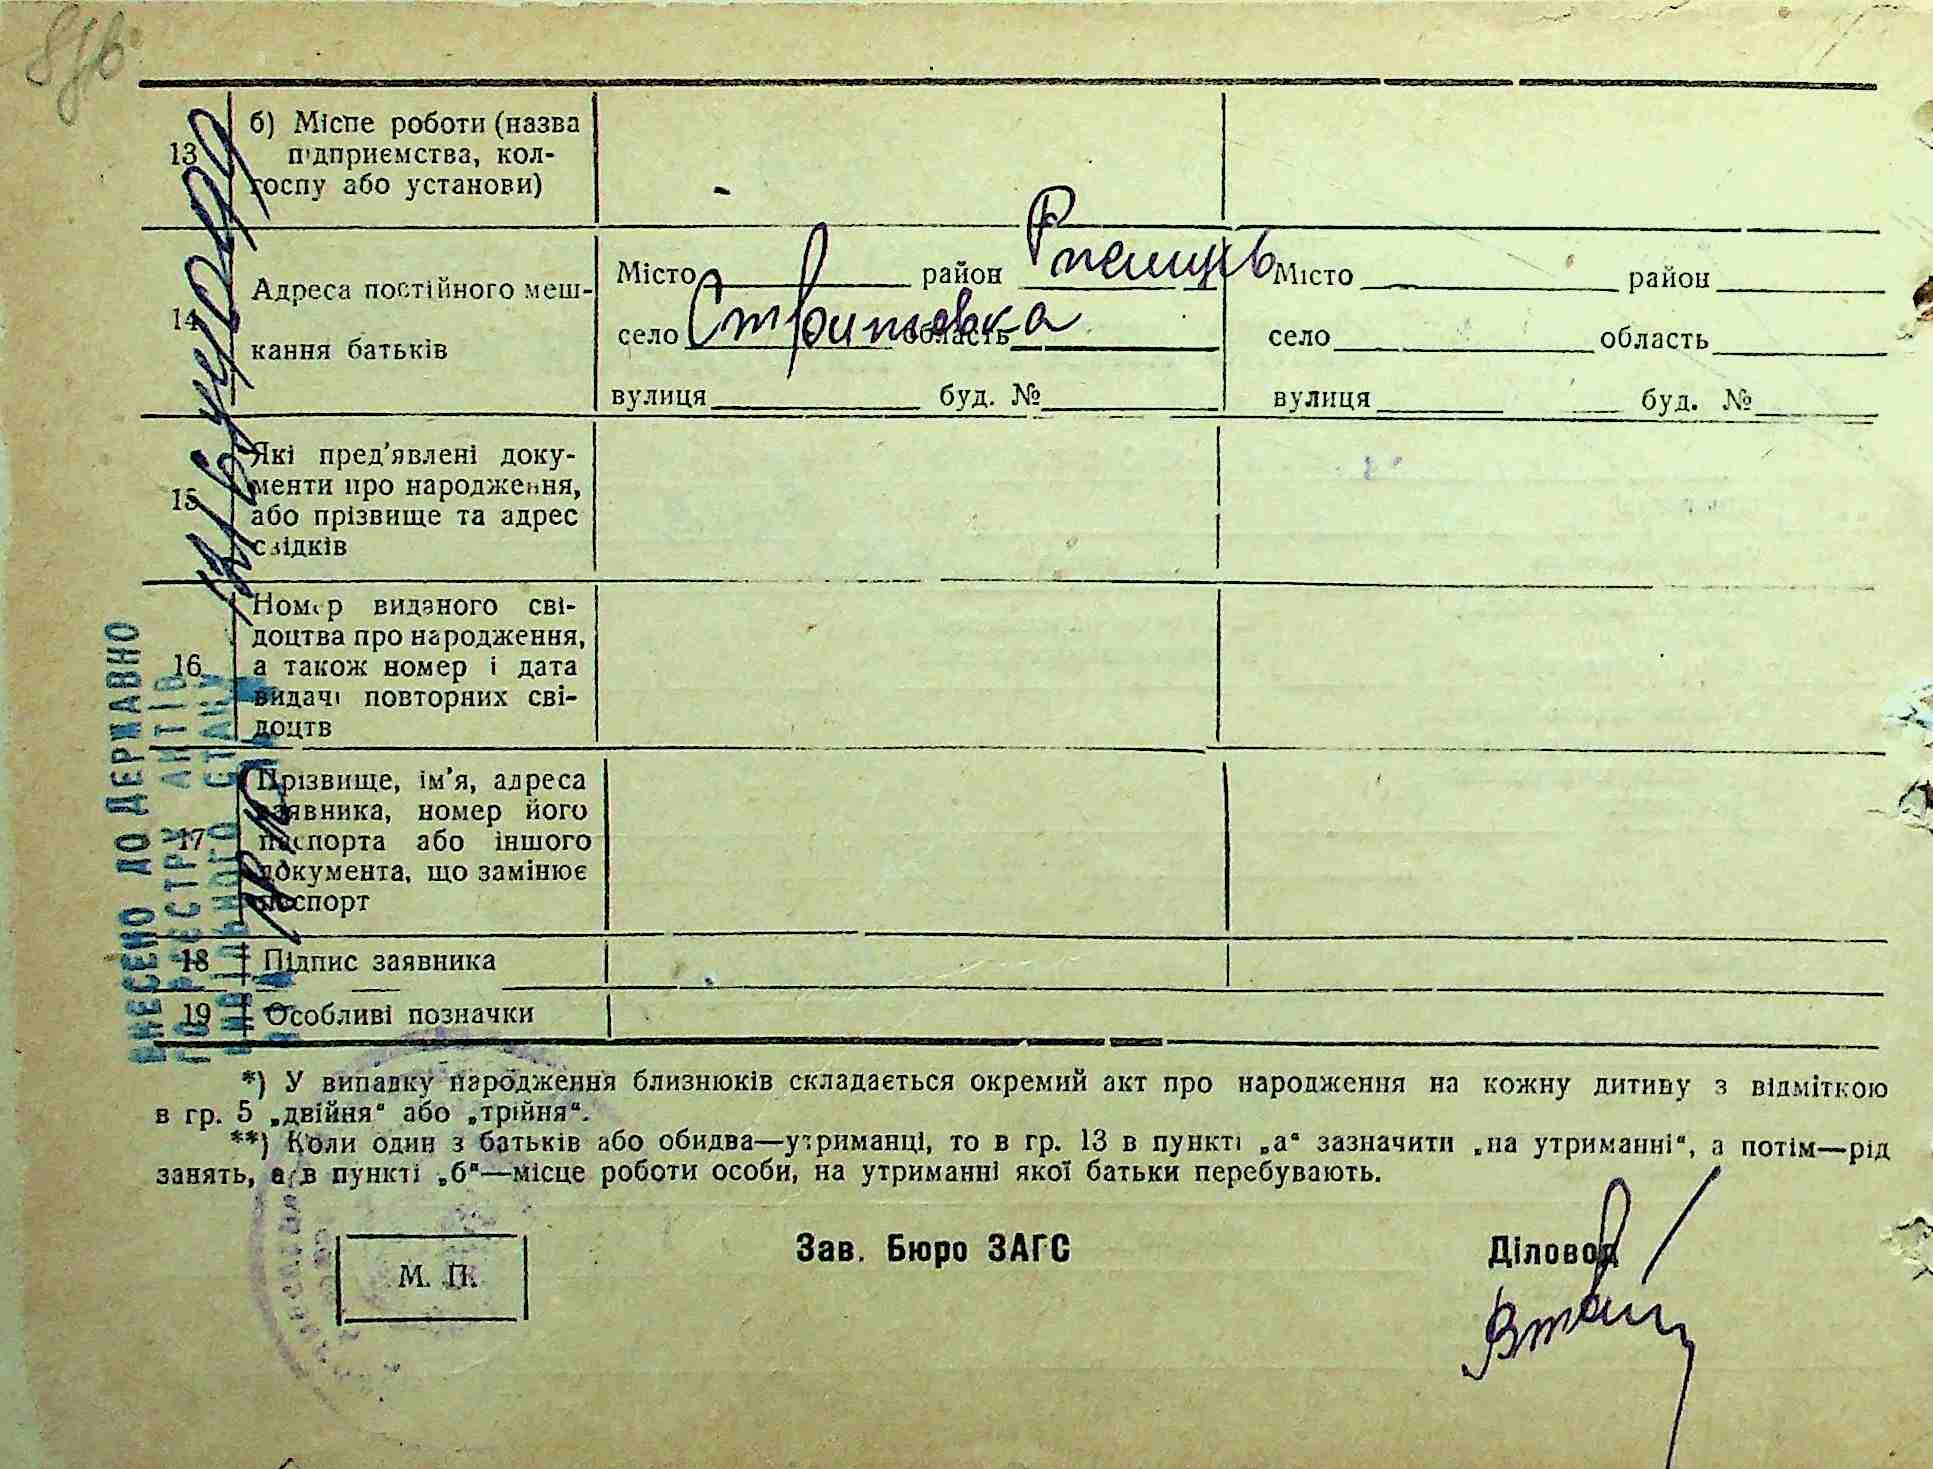 13
б) Місце роботи (назва
підприємства, кол-
госпу або установи)
14
Адреса постійного меш-
кання батьків
Місто район
село область
вулиця буд. №
Місто район
село область
вулиця буд. №
15
Які пред'явлені доку-
менти про народження,
або прізвище та адрес
свідків
16
Номер виданого сві-
доцтва про народження,
а також номер і дата
видачі повторних сві-
доцтв
17
Прізвище, ім'я, адреса
заявника, номер його
паспорта або іншого
документа, що замінює
паспорт
18 Підпис заявника
19 Особливі позначки
ВНЕСЕНО ДО ДЕРЖАВНО
РЕЄСТРУ АКТІВ
СТАНУ
*) У випадку народження близнюків складається окремий акт про народження на кожну дитину з відміткою
в гр. 5 „двійня“ або „трійня“.
**) Коли один з батьків або обидва—утриманці, то в гр. 13 в пункті „а“ зазначити „на утриманні“, а потім—рід
занять, а в пункті „б“—місце роботи особи, на утриманні якої батьки перебувають.
М. П.
Зав. Бюро ЗАГС
Діловод